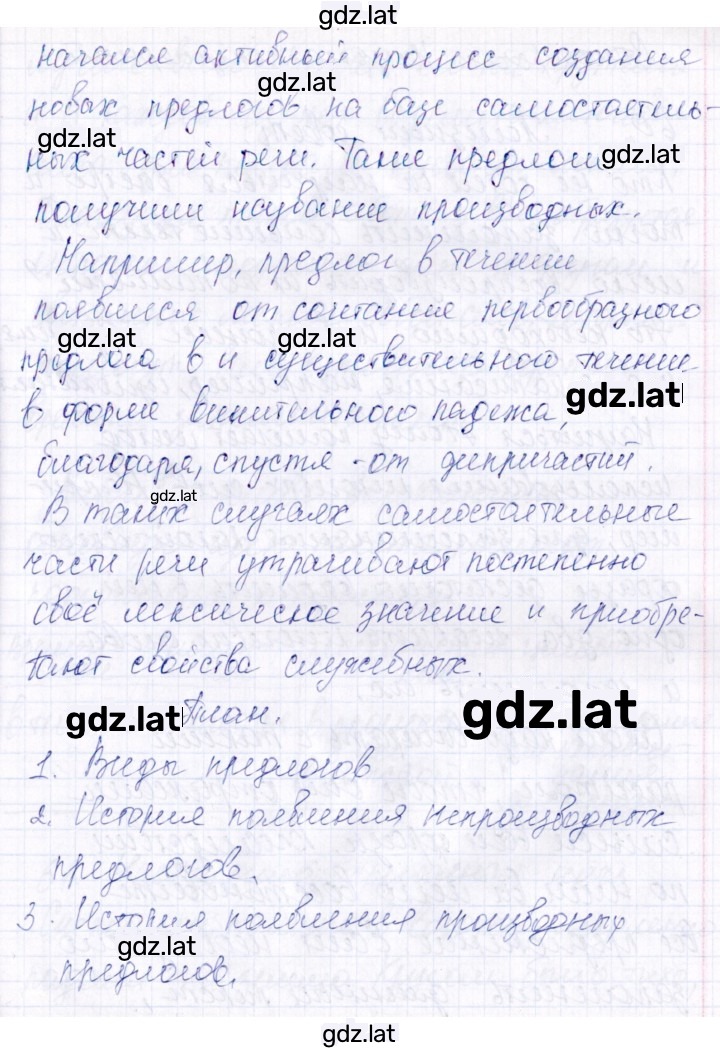 gdz.lat
начался активный процесс создания
gdz.lat
новых предлогов на базе самостаетель-
gdz.lat
ных частей речи. Такие предлоги
gdz.lat
получили название производных.
Например, предлог в течении
появился от сочетание первообразного
gdz.lat gdz.lat
предлога в и существительного течение
gdz.lat
в форме винительного падежа,
благодаря, спустя - от дипричастий.
gdz.lat
В таких случаях самостоятельные
части речи утрачивают постепенно
своё лексическое значение и приобре-
тают свойства служебных.
gdz.lat План. gdz.lat
1. Виды предлогов
2. История появления непроизводных
предлогов.
3. История появления производных
gdz.lat
предлогов.
gdz.lat